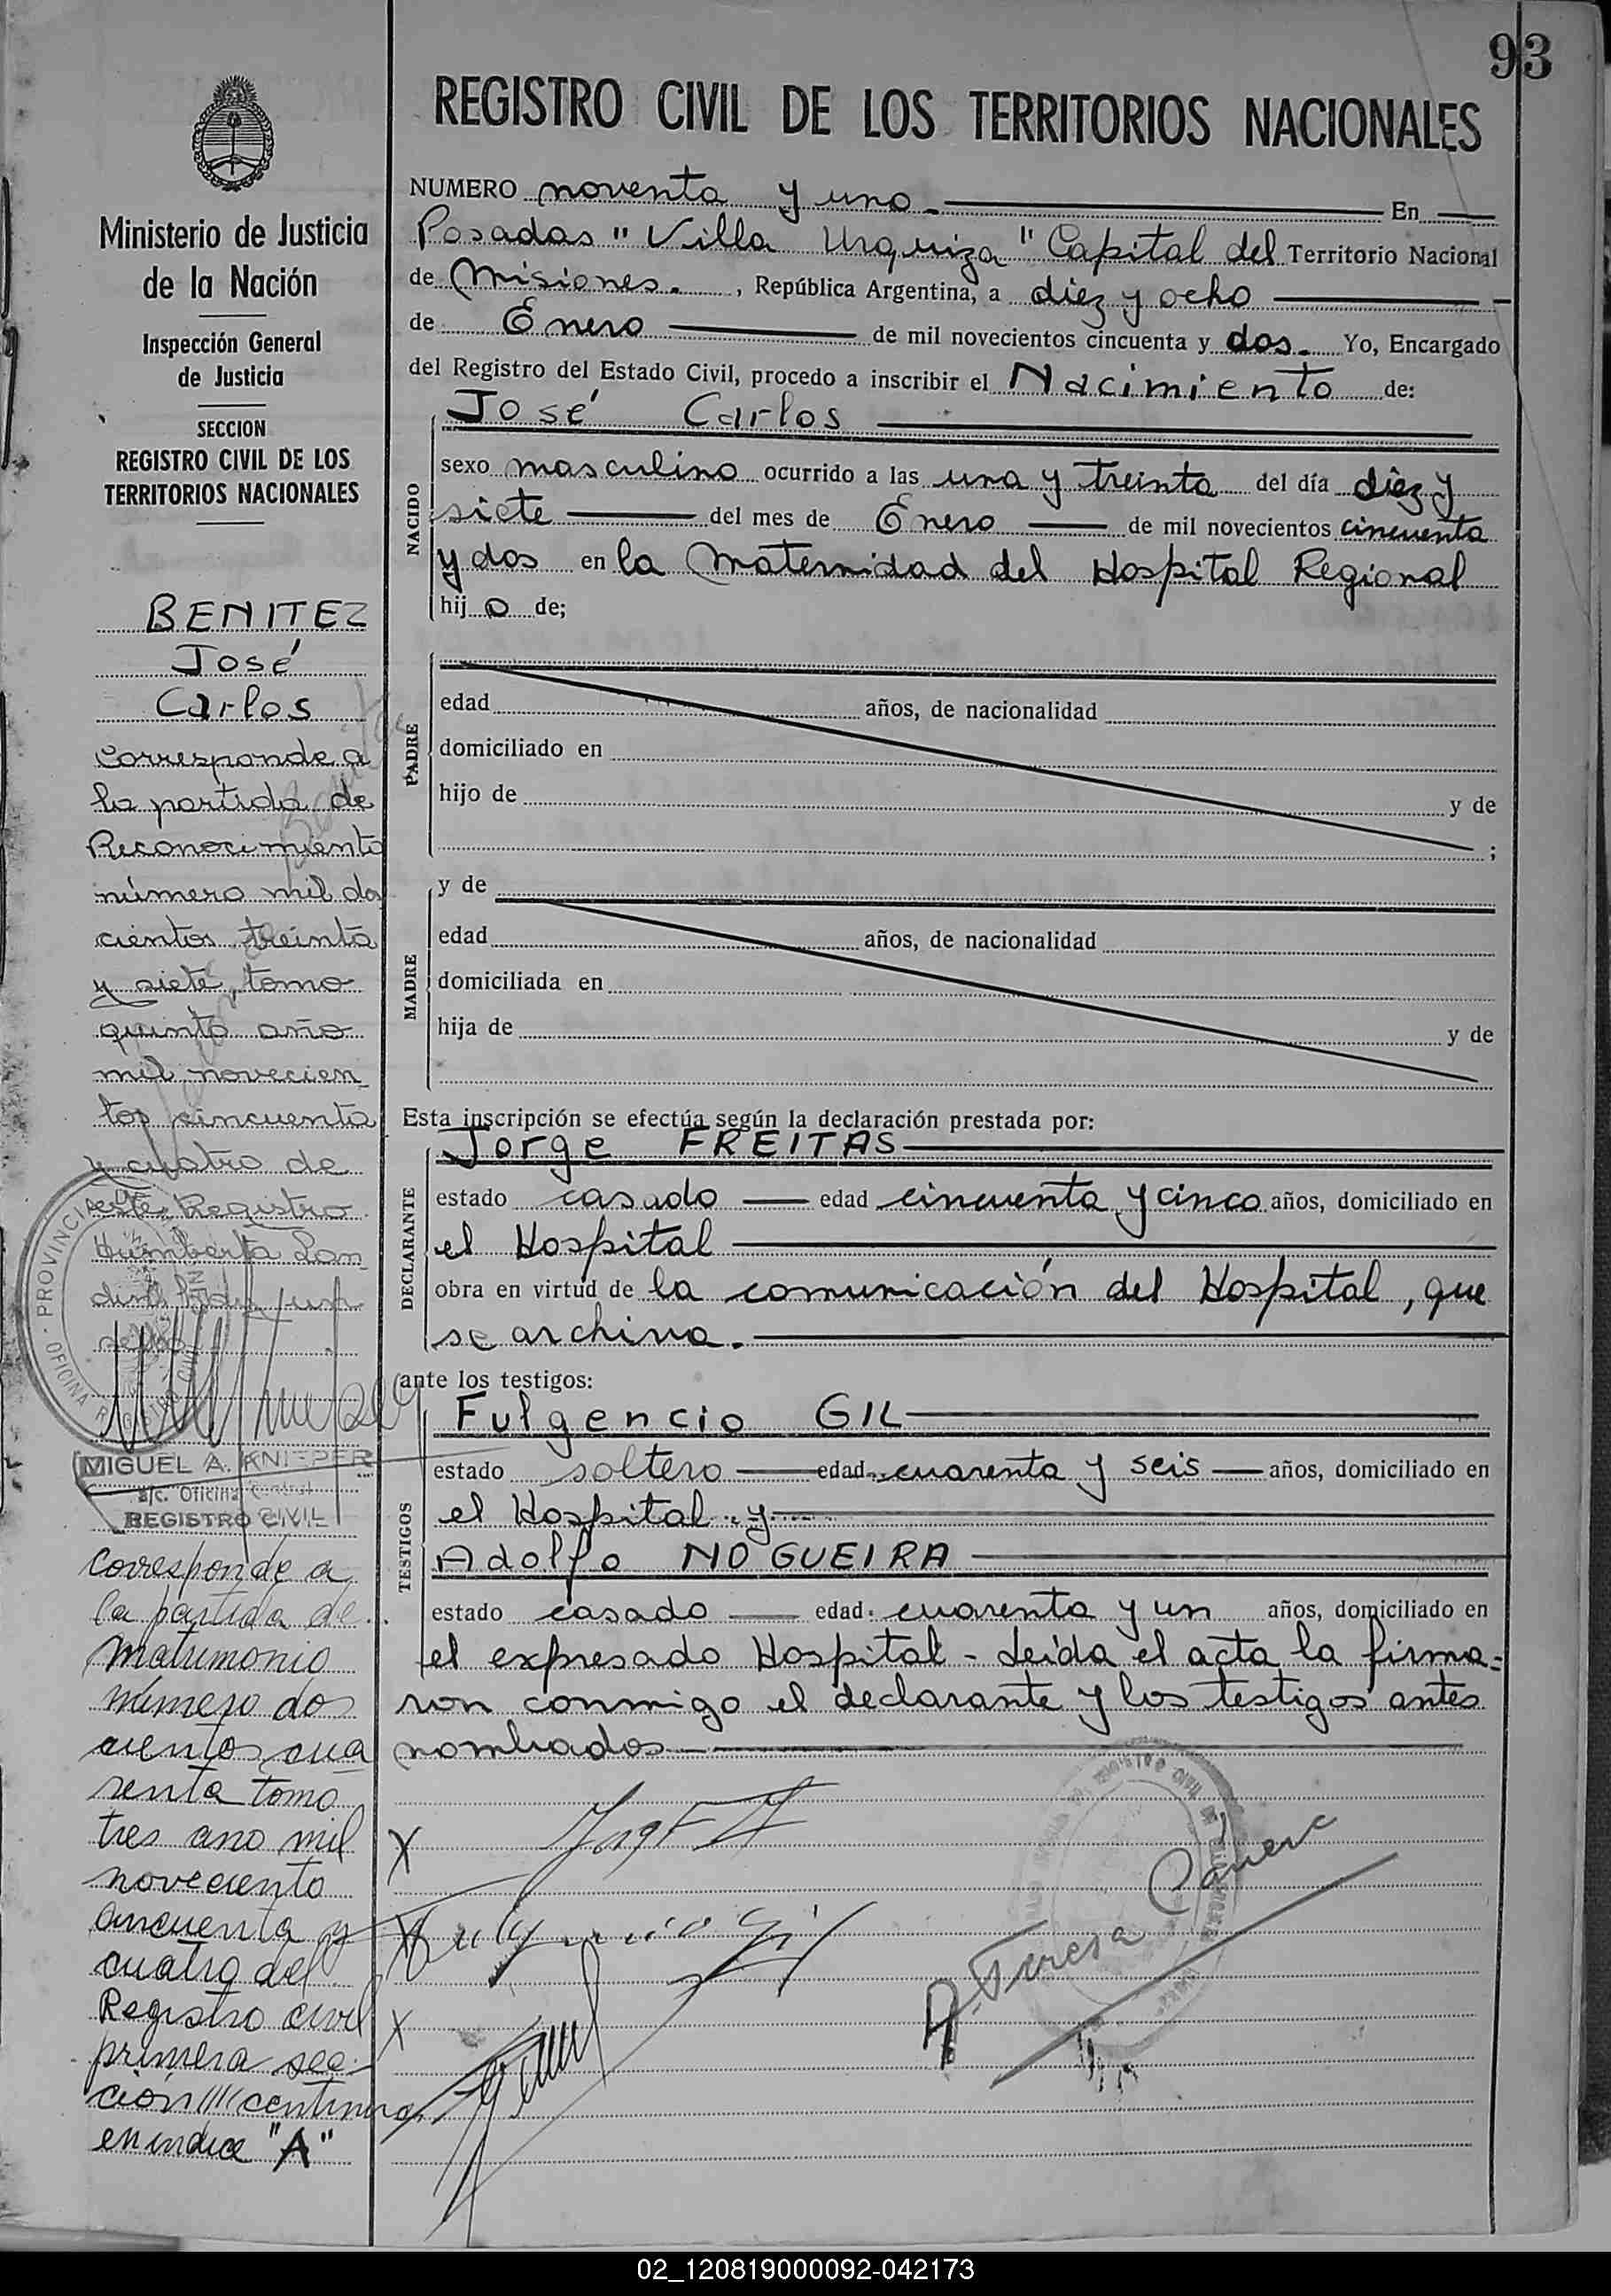 93
REGISTRO CIVIL DE LOS TERRITORIOS NACIONALES
Ministerio de Justicia
de la Nación
Inspección General
de Justicia
SECCION
REGISTRO CIVIL DE LOS
TERRITORIOS NACIONALES
BENITEZ
José
Carlos
Corresponde a
la partida de
Reconocimiento
número mil dos
cientos treinta
y siete, tomo
quinto año
mil novecien
tos cincuenta
y cuatro de
este Registro
PROVINCIA
OFICINA
MIGUEL A. KNIEPER
a/c. Oficina Central
REGISTRO CIVIL
Corresponde a
la partida de
matrimonio
número dos
cientos cua
renta tomo
tres ano mil
noveciento
cincuenta y
cuatro del
Registro civil
primera sec
ción //// continua
en indice "A"
NUMERO noventa y uno. En
Posadas "Villa Urquiza" Capital del Territorio Nacional
de Misiones. , República Argentina, a diez y ocho
de Enero de mil novecientos cincuenta y dos. Yo, Encargado
del Registro del Estado Civil, procedo a inscribir el Nacimiento de:
NACIDO
José Carlos
sexo masculino ocurrido a las una y treinta del día diez y
siete del mes de Enero de mil novecientos cincuenta
y dos en la Maternidad del Hospital Regional
hij o de;
PADRE
edad años, de nacionalidad
domiciliado en
hijo de y de
;
MADRE
y de
edad años, de nacionalidad
domiciliada en
hija de y de
Esta inscripción se efectúa según la declaración prestada por:
DECLARANTE
Jorge FREITAS
estado casado edad cincuenta y cinco años, domiciliado en
el Hospital
obra en virtud de la comunicación del Hospital, que
se archiva.
ante los testigos:
TESTIGOS
Fulgencio GIL
estado soltero edad cuarenta y seis años, domiciliado en
el Hospital y
Adolfo NOGUEIRA
estado casado edad cuarenta y un años, domiciliado en
el expresado Hospital - Leída el acta la firma=
ron conmigo el declarante y los testigos antes
nombrados
X
X
X
Teresa
02_120819000092-042173